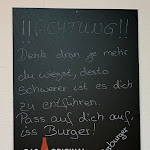 !!ACHTUNG!!
Denk dran je mehr
du wiegst, desto
schwerer ist es dich
zu entführen.
Pass auf dich auf,
iss Burger!
ORIGINAL